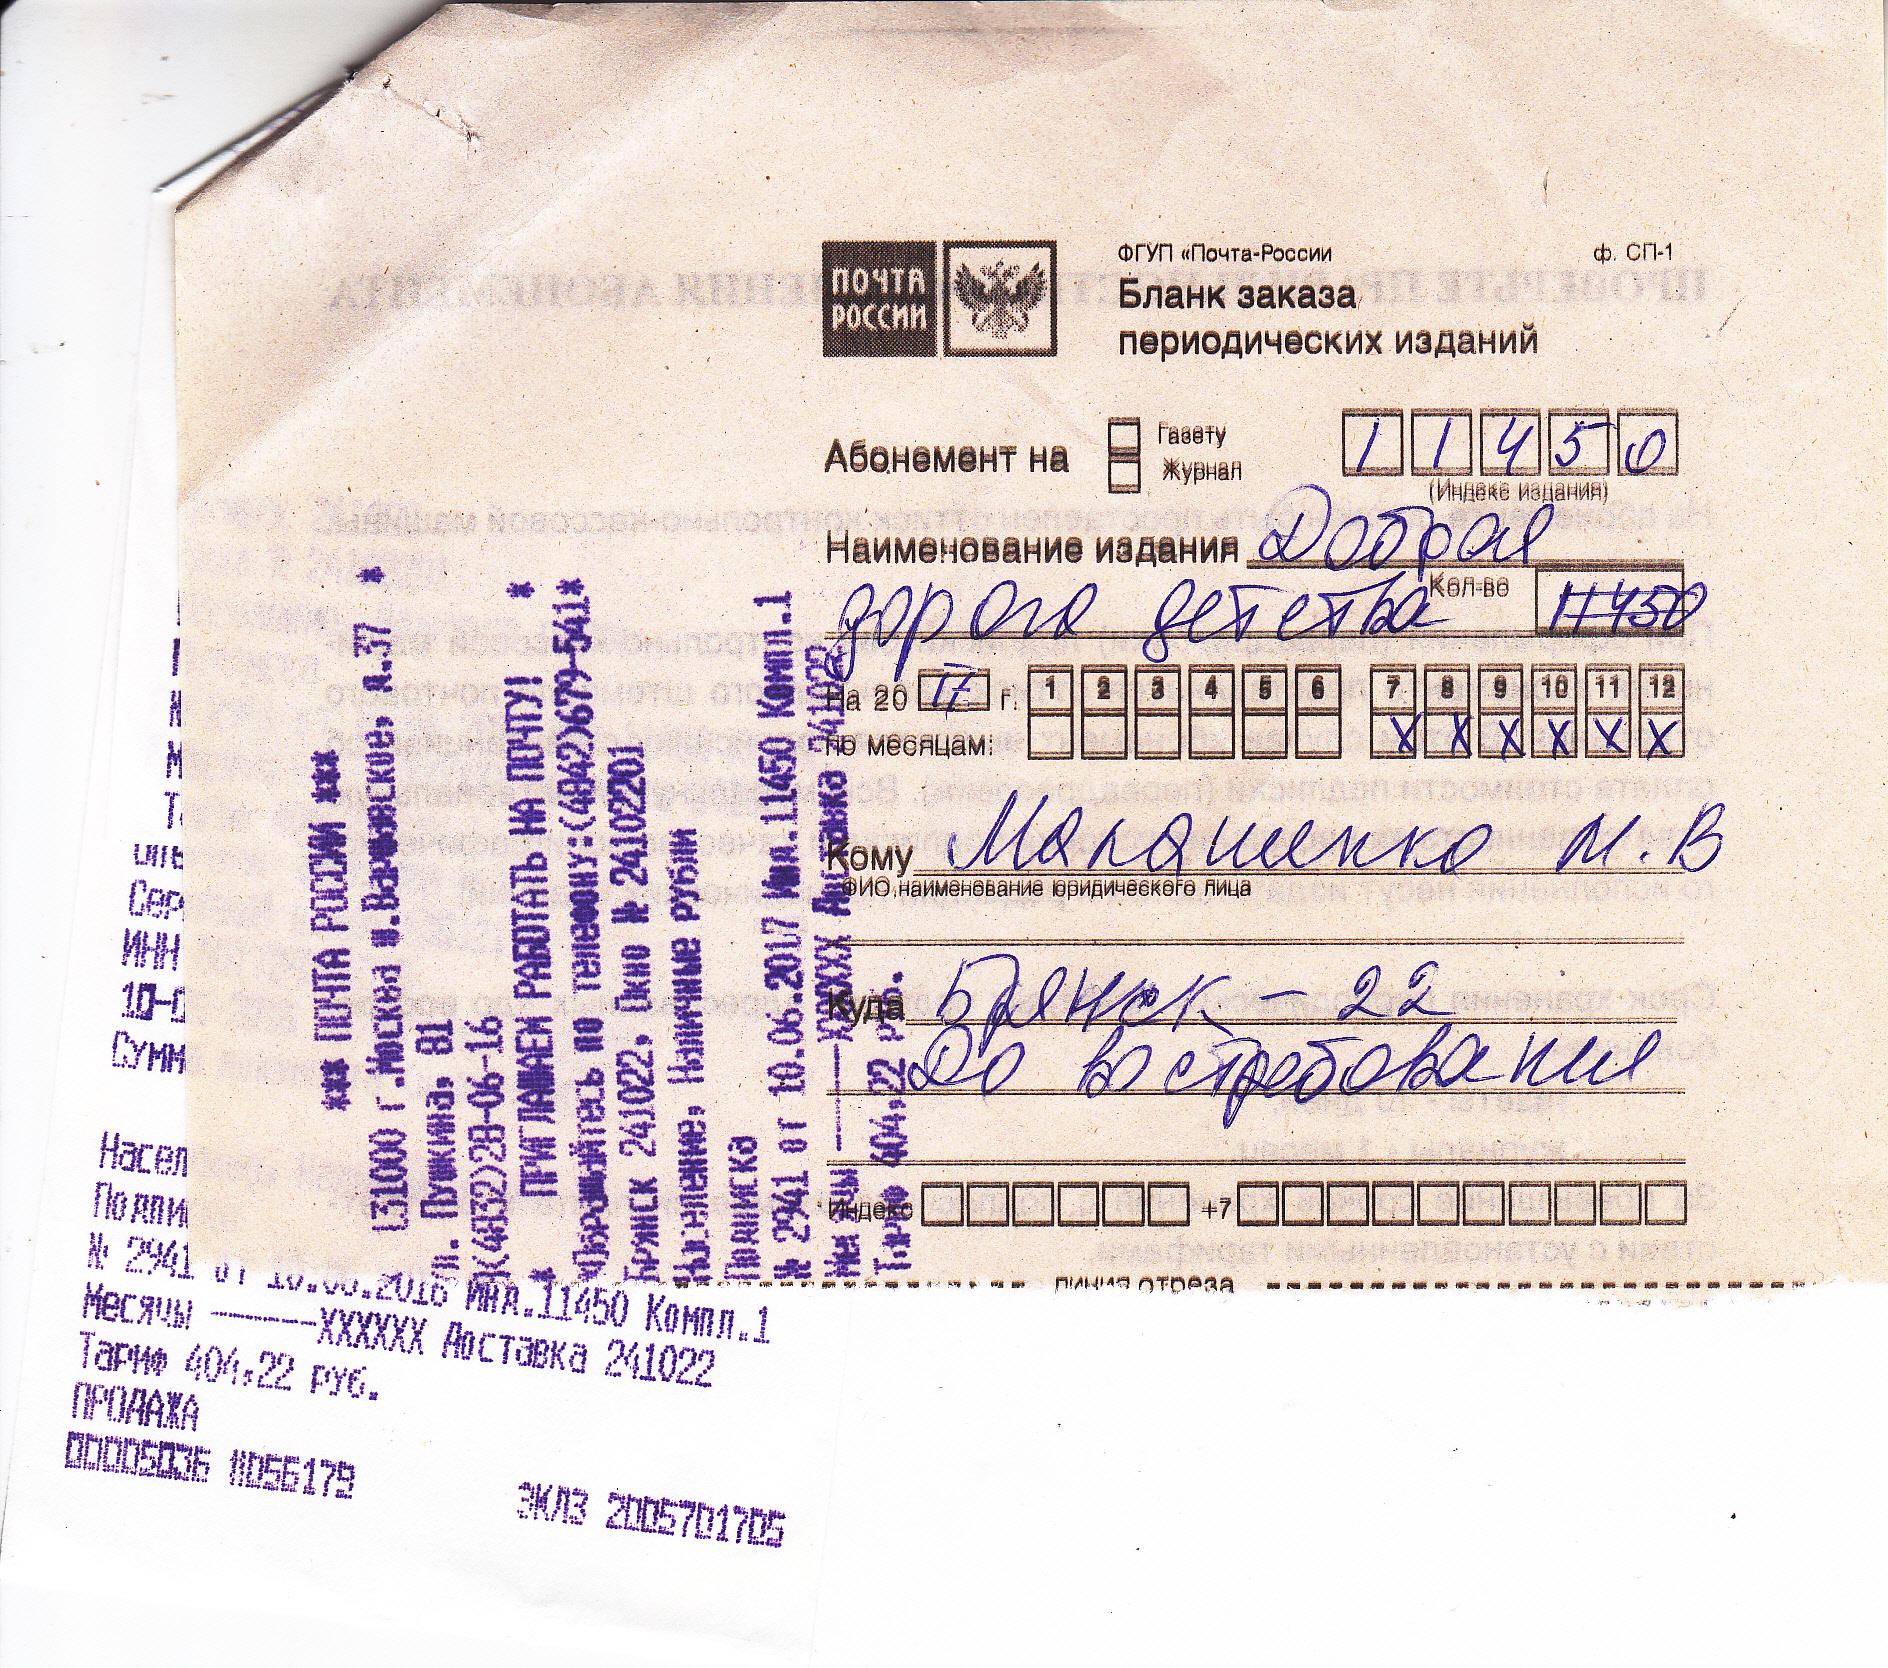 ПОЧТА
РОССИИ
ФГУП «Почта-России
ф. СП-1
Бланк заказа
периодических изданий
Абонемент на
Газету
Журнал
1 1 4 5 0
(Индекс издания)
Наименование издания Добрая
дорога детства Кол-во 11450
На 20 17 г. 1 2 3 4 5 6 7 8 9 10 11 12
по месяцам: X X X X X X
Кому Малашенко М.В
ФИО, наименование юридического лица
Куда Брянск - 22
До востребования
Индекс +7
линия отреза
*** ПОЧТА РОССИИ ***
131000 г.Москва ш.Варшавское, д.37 *
п. Пушкина, 81
(4832)28-06-16
* ПРИГЛАШАЕМ РАБОТАТЬ НА ПОЧТУ! *
Обращайтесь по телефону:(4842)679-541*
Брянск 241022, Окно № 24102201
Население, Наличные рубли
Подписка
№ 2941 от 10.06.2017 Инд.11450 Компл.1
------XXXXXX Доставка 241022
Тариф 404,22 руб.
Сер
ИНН
Сумм
Насел
Подпи
№ 2941 от 10.06.2016 Инд.11450 Компл.1
Месяцы ------XXXXXX Доставка 241022
Тариф 404,22 руб.
ПРОДАЖА
00005036 11056179
ЭКЛЗ 2005701705